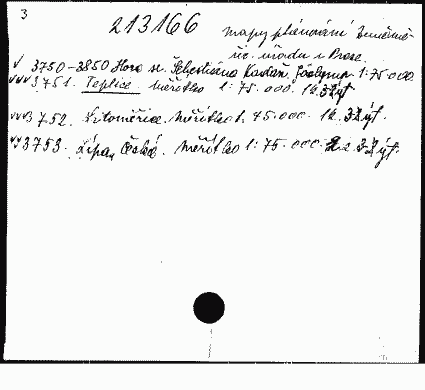 3
213166 mapy plánování Zeměmě-
řic. úřadu v Praze.
√ 3750-3850 Hora sv. Šebestiána Kadaň, 1:75.000.
√√√3751. Teplice měřítko 1:75.000. 1x 3 výt.
√√√3752. Litoměřice. Měřítko 1:75.000. 1x 3 výt.
√√3753. Lípa, Česká. Měřítko 1:75.000. 2x 3 výt.